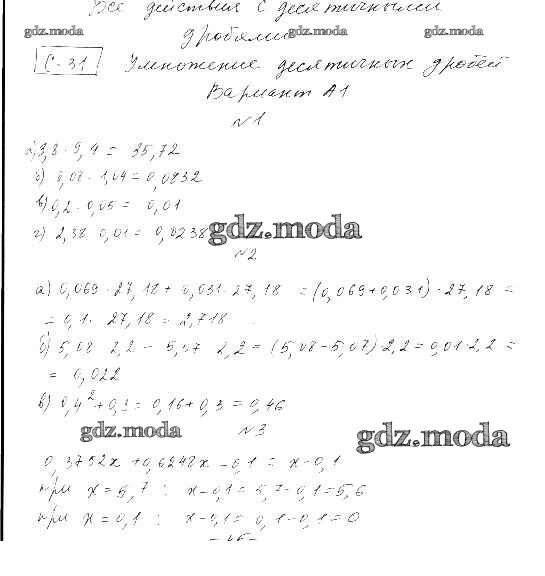 Все действия с десятичными
gdz.moda gdz.moda gdz.moda
дробями
С-31 Умножение десятичных дробей
Вариант А1
№1
а) 3,8 · 9,4 = 35,72
б) 0,08 · 1,04 = 0,0832
в) 0,2 · 0,05 = 0,01
г) 2,38 · 0,01 = 0,0238
gdz.moda
№2
а) 0,069 · 27,18 + 0,031 · 27,18 = (0,069+0,031) · 27,18 =
= 0,1 · 27,18 = 2,718
б) 5,08 · 2,2 - 5,07 · 2,2 = (5,08-5,07) · 2,2 = 0,01 · 2,2 =
= 0,022
в) 0,4² + 0,3 = 0,16 + 0,3 = 0,46
gdz.moda gdz.moda
№3
0,3752x + 0,6248x - 0,1 = x - 0,1
при x = 5,7 : x - 0,1 = 5,7 - 0,1 = 5,6
при x = 0,1 : x - 0,1 = 0,1 - 0,1 = 0